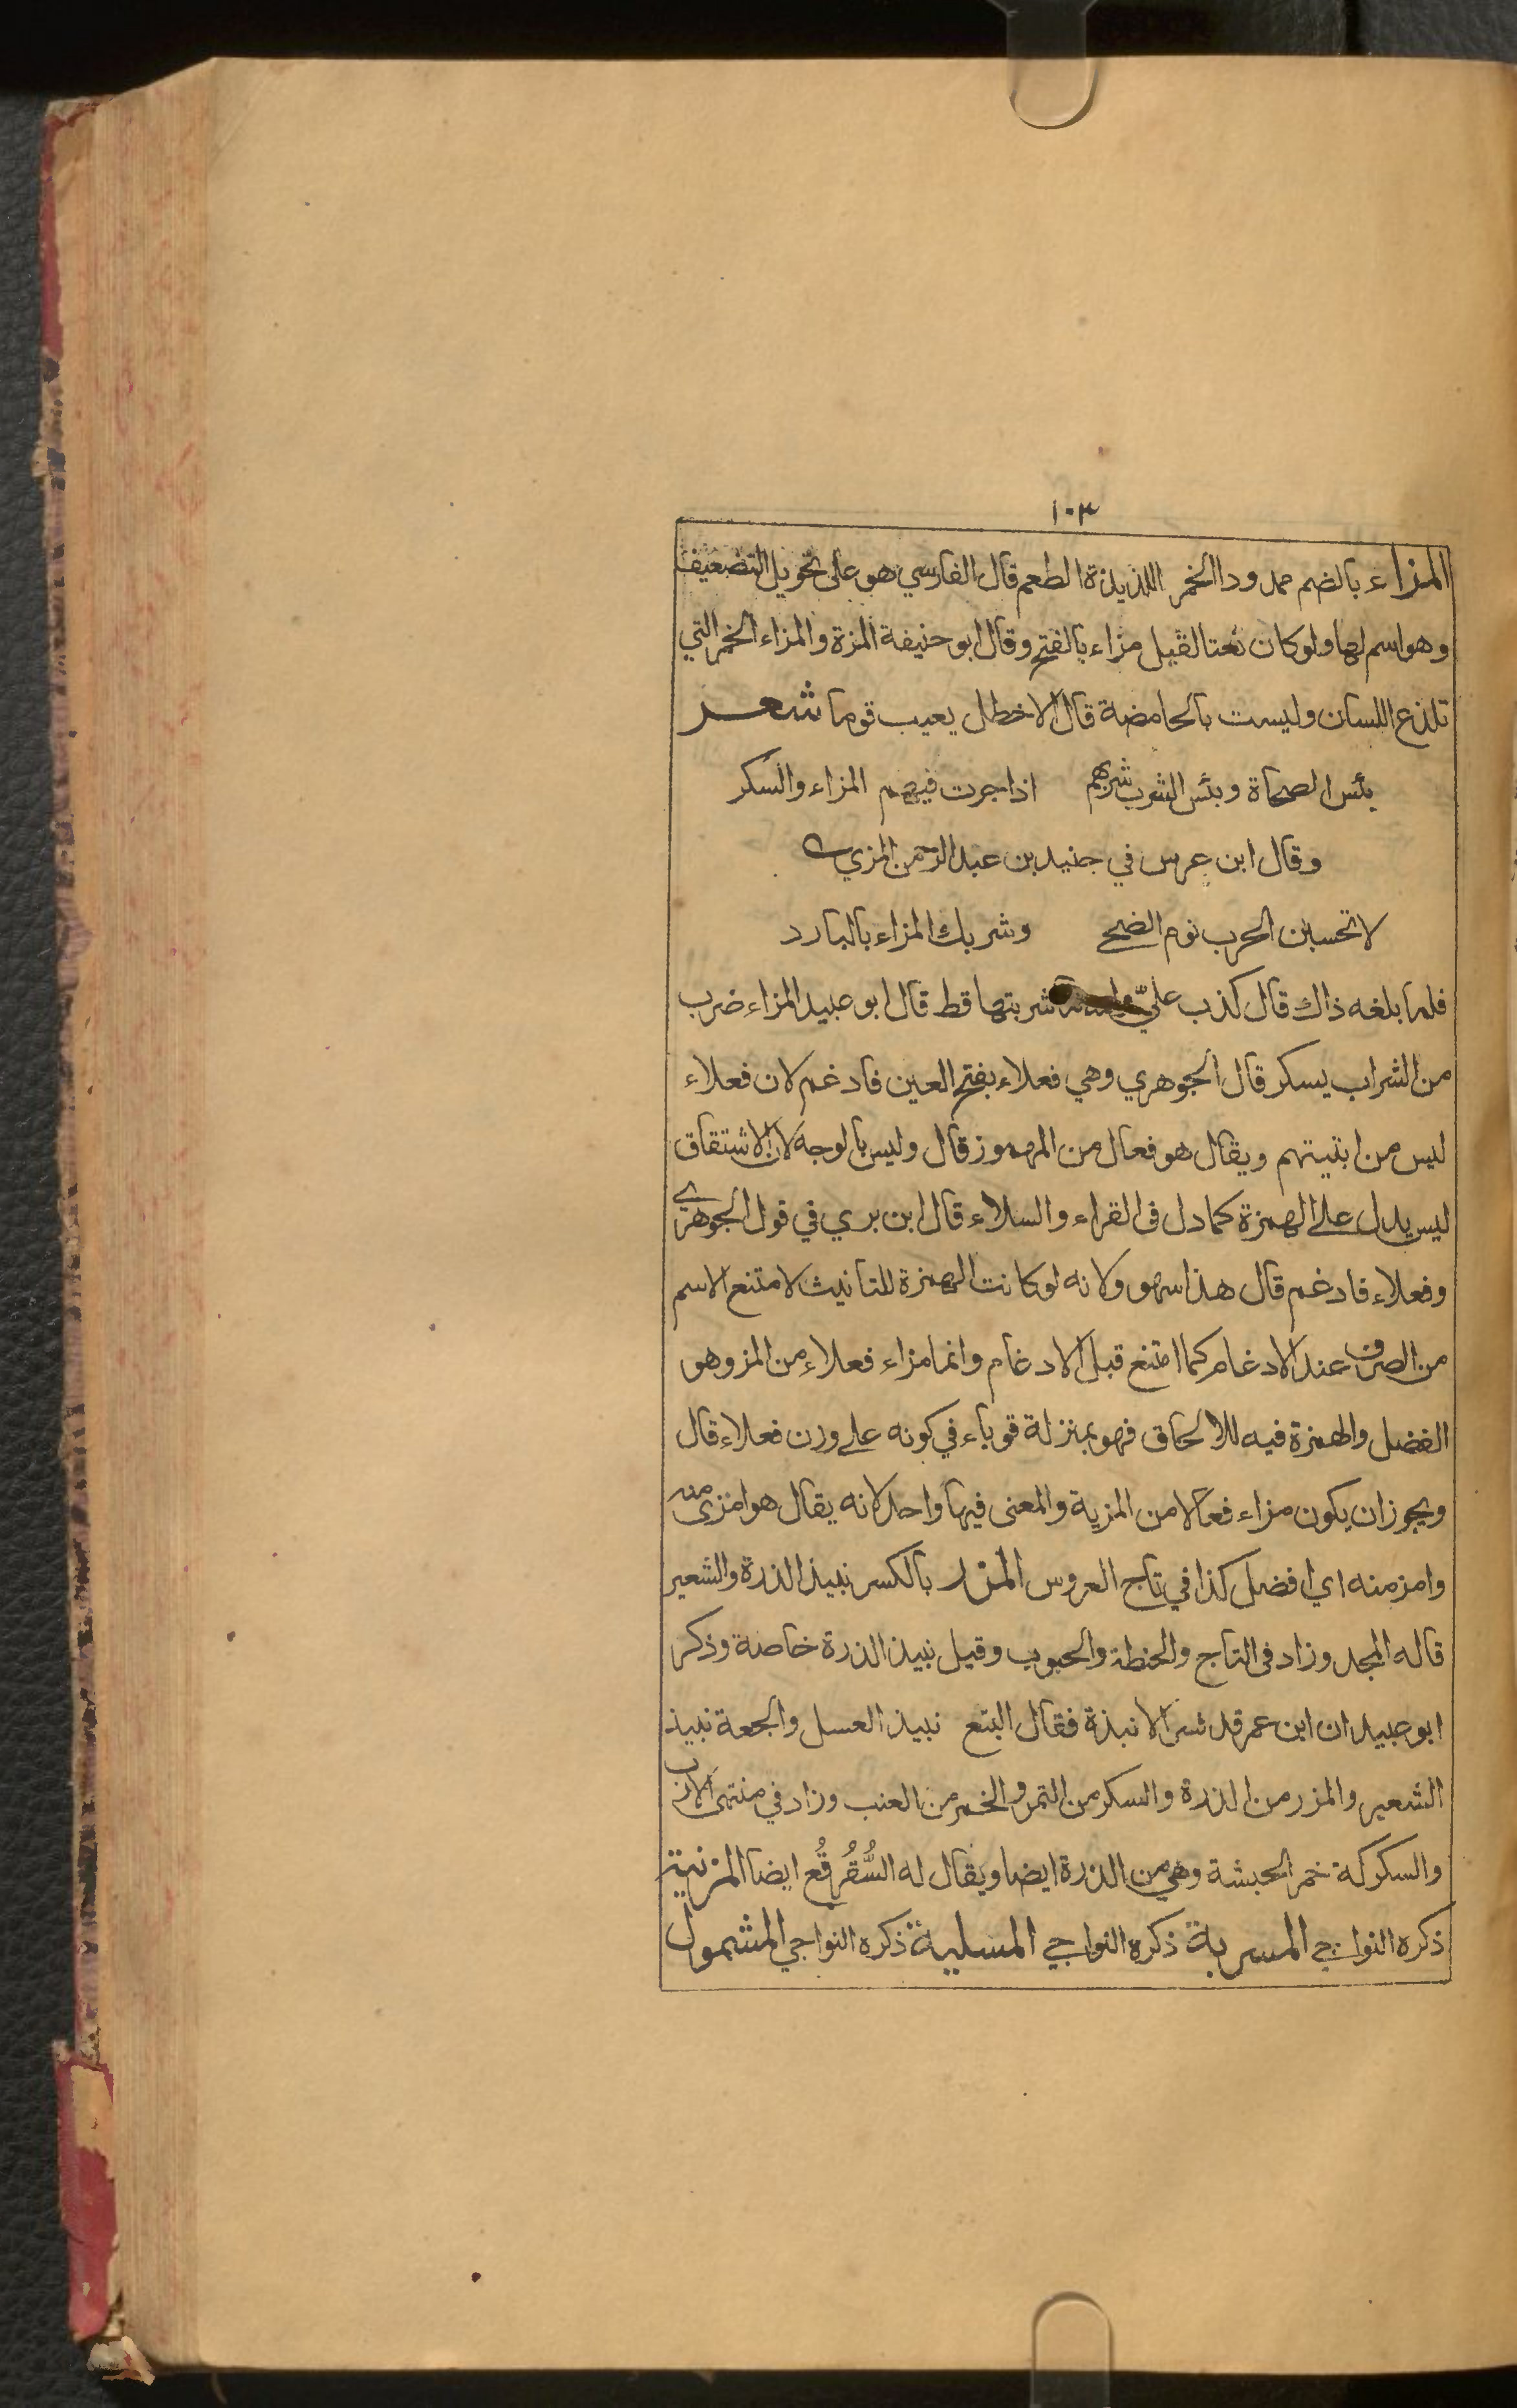 ١٠٣
المزاء بالضم ممدودا الخمر اللذيذة الطعم قال الفارسي هو على تحويل التضعيف
وهو اسم لها ولو كان نعتا لقيل مزاء بالفتح وقال ابو حنيفة المزة والمزاء الخمر التي
تلذع اللسان وليست بالحامضة قال الاخطل يعيب قوما شعر
بئس الصحاة وبئس الشرب شربهم اذا جرت فيهم المزاء والسكر
وقال ابن عرس في جنيد بن عبد الرحمن المزي
لا تحسبن الحرب نوم الضحى وشربك المزاء بالبارد
فلما بلغه ذاك قال كذب عليّ شربتها قط قال ابو عبيد المزاء ضرب
من الشراب يسكر قال الجوهري وهي فعلاء بفتح العين فادغم لان فعلاء
ليس من ابنيتهم ويقال هو فعال من المهموز قال وليس بالوجه لان الاشتقاق
ليس يدل على الهمزة كما دل فى القراء والسلاء قال ابن بري في قول الجوهري
وفعلاء فادغم قال هذا سهو ولانه لو كانت الهمزة للتانيث لامتنع الاسم
من الصرف عند الادغام كما امتنع قبل الادغام وانما مزاء فعلاء من المز وهو
الفضل والهمزة فيه للالحاق فهو بمنزلة قوباء في كونه على وزن فعلاء قال
ويجوز ان يكون مزاء فعالا من المزية والمعنى فيها واحد لانه يقال هو امزى منه
وامز منه اي افضل كذا في تاج العروس المزر بالكسر نبيذ الذرة والشعير
قاله المجد وزاد فى التاج والحنطة والحبوب وقيل نبيذ الذرة خاصة وذكر
ابو عبيد ان ابن عمر قد فسر الانبذة فقال البتع نبيذ العسل والجعة نبيذ
الشعير والمزر من الذرة والسكر من التمر والخمر من العنب وزاد في منتهى الارب
والسكركة خمر الحبشة وهي من الذرة ايضا ويقال له السُّقُرقُع ايضا المزنية
ذكره النواجي المسربة ذكره النواجي المسلية ذكره النواجي المشمول